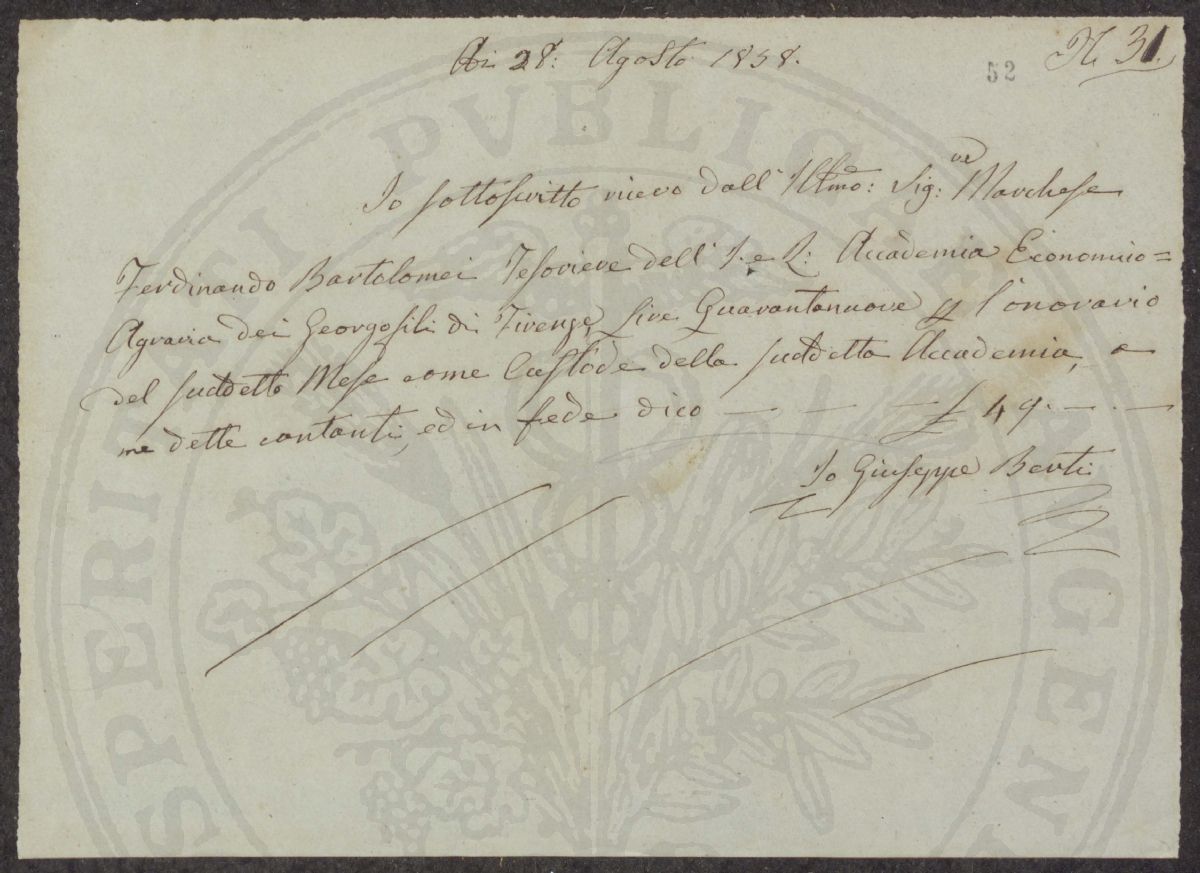 Ai 28: Agosto 1858.
N. 31.
52
Io sottoscritto ricevo dall' Illmo: Sig:re Marchese
Ferdinando Bartolomei Tesoriere dell' I. e R: Accademia Economico=
Agraria dei Georgofili di Firenze, Lire Quarantanuove p l'onorario
del suddetto Mese come Custode della suddetta Accademia, a
me dette contanti, ed in fede dico — — — £ 49. — . —
Io Giuseppe Berti
PROSPERITATI PUBLICAE AUGENDAE